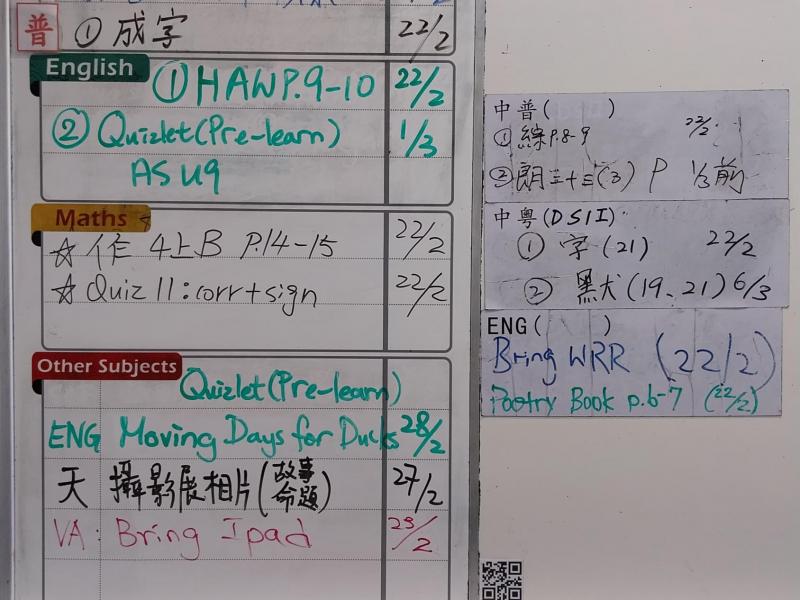 普 ① 成字 22/2
English
① HAW P.9-10 22/2
② Quizlet (Pre-learn) 1/3
AS U9
Maths
☆ 作 4上B P.14-15 22/2
☆ Quiz 11: corr + sign 22/2
Other Subjects
Quizlet (Pre-learn)
ENG Moving Days for Ducks 28/2
天 攝影展相片 (故事命題) 27/2
VA: Bring Ipad 23/2
中普( )
① 綜 P.8-9 22/2
② 朗三十三(3) P 1/3前
中粵(DSII)
① 字 (21) 22/2
② 黑犬 (19、21) 6/3
ENG( )
Bring WRR (22/2)
Poetry Book p.6-7 (22/2)